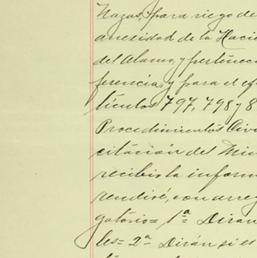 Nazas, para riego de
anexidad de la Haci
del Alamo, y pertenec
ferencia, y para el ef
tículos 797, 798 y 8
Procedimientos Civi
citación del Min
recibir la inform
rendiré, con arreg
gatorio= 1ª Dirán
les= 2ª Dirán si es